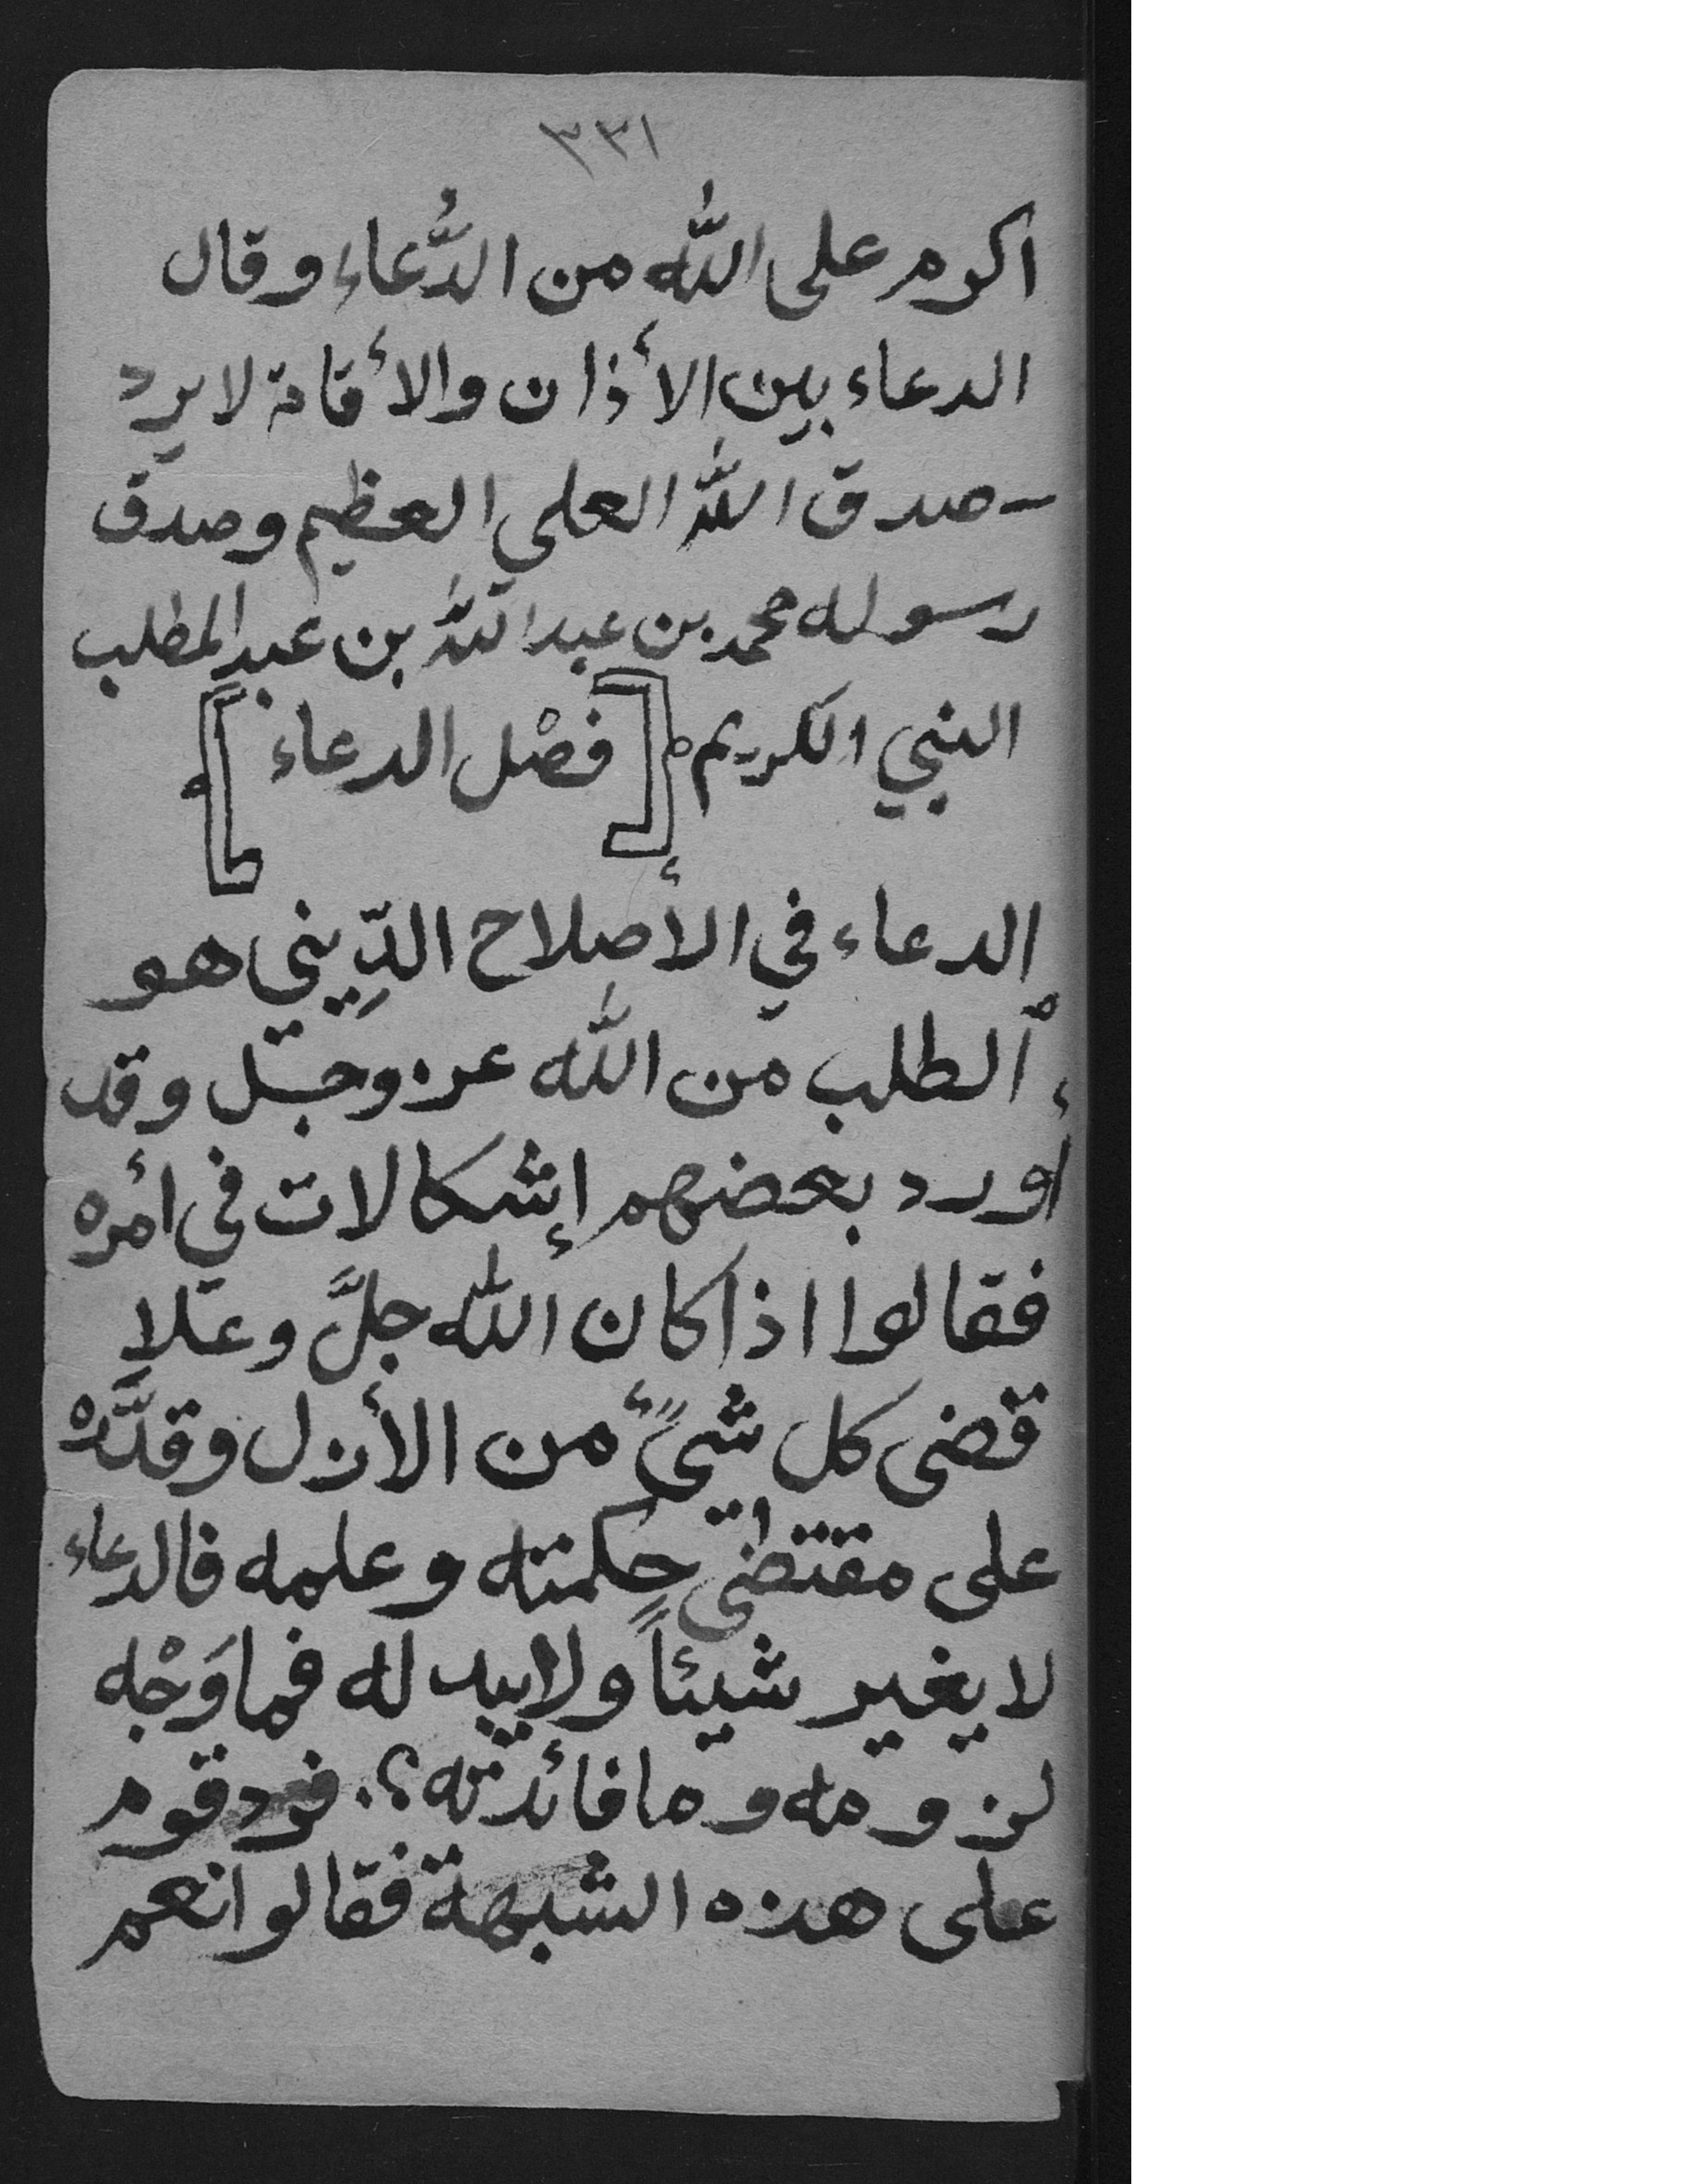 ٣٣١
اكرم على الله من الدُّعاء وقال
الدعاء بين الأذان والأقامة لا يرد
ـ صدق الله العلي العظيم وصدق
رسوله محمد بن عبد الله بن عبد المطلب
النبي الكريم [فصْل الدعاء]
الدعاء في الأصلاح الدِّيني هو
ألطلب من الله عز وجل وقد
أورد بعضهم إشكالات في أمره
فقالوا اذا كان الله جلَّ وعلا
قضى كل شيءٍ من الأزل وقدَّره
على مقتضى حِكمته وعلمه فالدعاء
لا يغير شيئاً ولا يبد له فما وَجْه
لزومه وما فائدته؟. فرد قوم
على هذه الشبهة فقالوا نعم